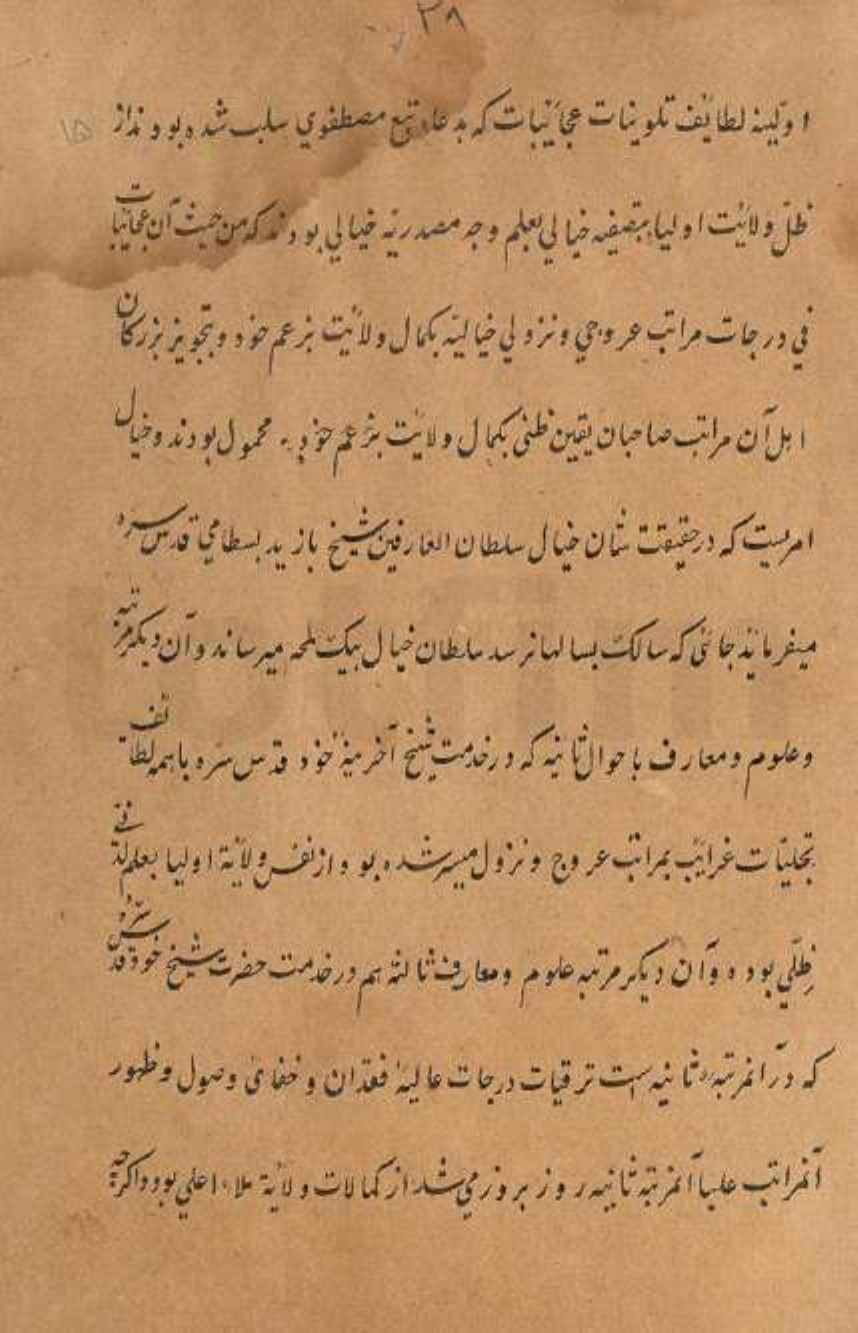 ۳۸
۱۵
اولینهٔ لطایف تلوینات عجائبات که بدعاء تبع مصطفوي سلب شده بودند از
ظلّ ولائیت اولیا بتصفیه خیالي بعلم وجه مصدریّه خیالي بودند که من حیث آن عجائبات
في درجات مراتب عروجي ونزولي خیالیّه بکمال ولائیت بزعم خود و بتجویز بزرکان
اہل آن مراتب صاحبان یقین ظنی بکمال ولایت بزعم خود محمول بودند وخیال
امریست که درحقیقت شان خیال سلطان العارفین شیخ بازید بسطامي قدس سره
میفرماید جائی که سالک بسالها نرسد سلطان خیال بیک لمحه میرساند وآن دیکرمرتبه
وعلوم ومعارف باحوال ثانیه که درخدمت شیخ آخرینهٔ خود قدس سره باہمه لطائف
تجلیّات غرایب بمراتب عروج ونزول میسر شده بود از نفس ولایة اولیا بعلم لذّ
ظِلّي بوده وآن دیکر مرتبه علوم ومعارف ثالثه ہم درخدمت حضرت شیخ خود قدس سره
که درآنمرتبهٔ ثانیه است ترقیات درجات عالیهٔ فقدان وخفائ وصول وظهور
آنمراتب علیا آنمرتبهٔ ثانیه روز بروز می شد از کمالات ولایة ملاء اعلي بود واکرچه